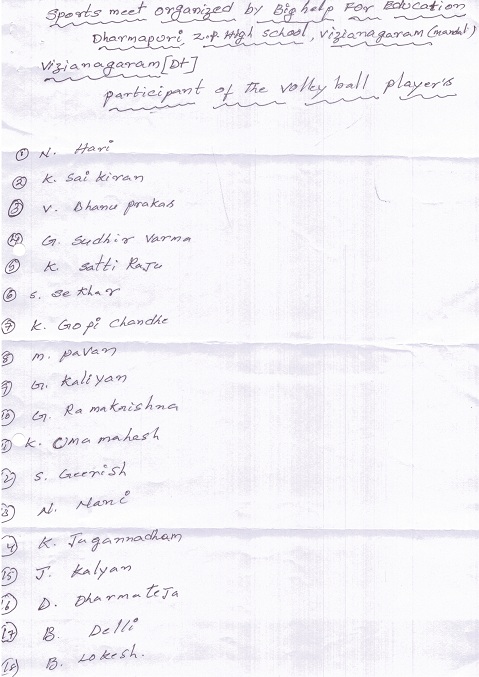 Sports meet organized by Bighelp For Education
Dharmapuri Z.P. High school, Vizianagaram (mandal)
Vizianagaram [Dt]
participant of the volley ball player's
① N. Hari
② K. Sai kiran
③ V. Dhanu prakas
④ G. Sudhir varma
⑤ K. Satti Raju
⑥ S. Sekhar
⑦ K. Gopi chandhe
⑧ M. pavan
⑨ G. Kaliyan
⑩ G. Ramakrishna
⑪ K. Umamahesh
⑫ S. Geerish
⑬ N. Nani
⑭ K. Jagannadham
⑮ J. Kalyan
⑯ D. Dharmateja
⑰ B. Delli
⑱ B. Lokesh.